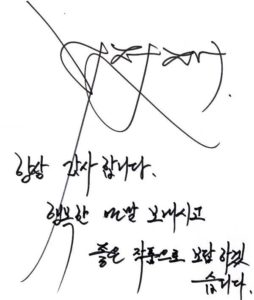 항상 감사합니다.
행복한 연말 보내시고
좋은 작품으로 보답하겠
습니다.